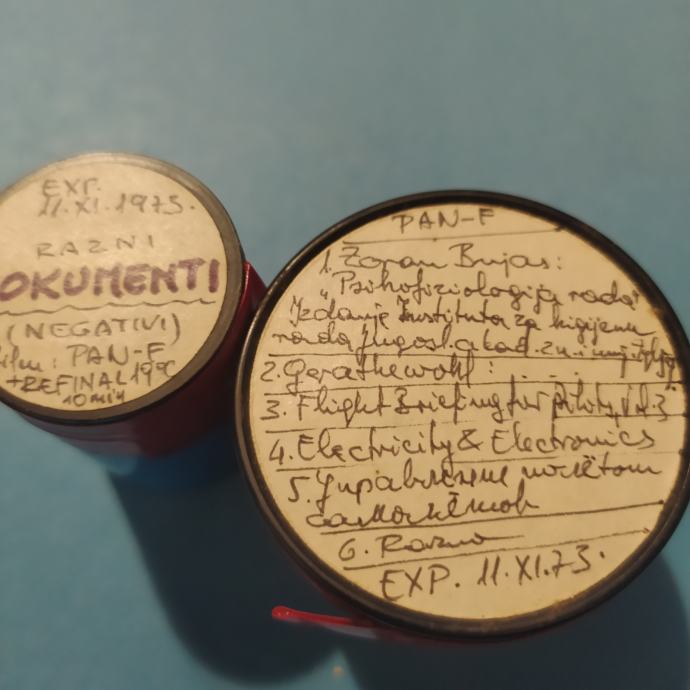 EXP.
11.XI.1975.
RAZNI
OKUMENTI
(NEGATIVI)
ilm: PAN-F
+REFINAL 19°C
10 min
PAN-F
1. Zoran Bujas:
"Psihofiziologija rada"
Izdanje Instituta za higijenu
rada Jugosl. akad. zn. i umj.
2. Gerathewohl: . . . .
3. Flight Briefing for pilots, Vol. 3
4. Electricity & Electronics
5. Управление полётом
самолётов
6. Razno
EXP. 11.XI.73.